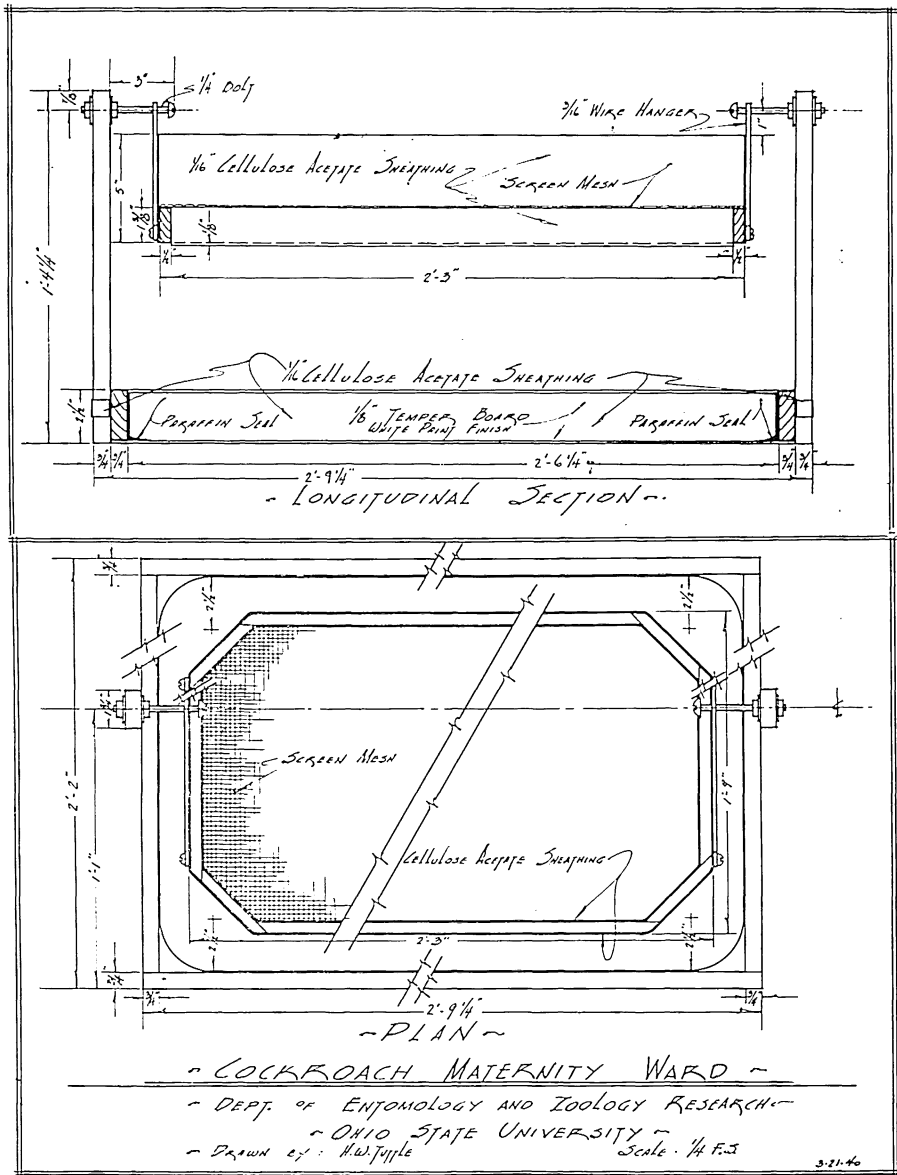 3"
1/4 Bolt
3/16" Wire Hanger
1"
1/16" Cellulose Acetate Sheathing
Screen Mesh
5"
1 3/8"
1/8"
1/2"
1/2"
2'-3"
1'-4 1/4"
1/16" Cellulose Acetate Sheathing
2 1/2"
Paraffin Seal
1/8" Temper Board
White Paint Finish
Paraffin Seal
3/4"
3/4"
2'-6 1/4"
3/4"
3/4"
2'-9 1/4"
- Longitudinal Section -
3/4"
2 1/2"
2 1/2"
2'-2"
1'-1"
Screen Mesh
1'-9"
Cellulose Acetate Sheathing
2 1/2"
2'-3"
2 1/2"
3/4"
3/4"
3/4"
2'-9 1/4"
- Plan -
- Cockroach Maternity Ward -
- Dept. of Entomology and Zoology Research -
- Ohio State University -
- Drawn by: H.W. Tuttle
Scale - 1/4 F.S.
3-21-40